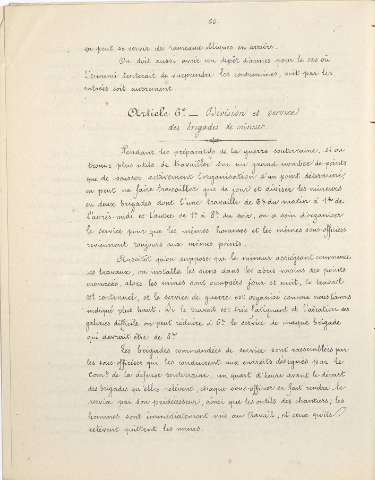 on peut se servir de rameaux obliques en arrière.
On doit aussi avoir un dépôt d'armes pour le cas où
l'ennemi tenterait de surprendre les contremines, soit par les
entrées soit autrement.
Article 6e - Division et service
des brigades de mineurs.
Pendant les préparatifs de la guerre souterraine, si on
trouve plus utile de travailler sur un grand nombre de points
que de pousser activement l'organisation d'un point déterminé,
on peut ne faire travailler que de jour et diviser les mineurs
en deux brigades dont l'une travaille de 6h du matin à 1h de
l'après-midi et l'autre de 1h à 8h du soir, on a soin d'organiser
le service pour que les mêmes hommes et les mêmes sous-officiers
reviennent toujours aux mêmes points.
Aussitôt qu'on suppose que le mineur assiégeant commence
ses travaux, on installe les siens dans les abris voisins des points
menacés, alors les mines sont occupées jour et nuit, le travail
est continuel, et le service de guerre est organisé comme nous l'avons
indiqué plus haut. Si le travail est très fatiguant et l'aération des
galeries difficile on peut réduire à 6h le service de chaque brigade
qui devrait être de 8h.
Les brigades commandées de service sont rassemblées par
les sous-officiers qui les conduisent aux endroits désignés par le
Comt de la défense souterraine, un quart d'heure avant le départ
des brigades qu'elles relèvent, chaque sous-officier se fait rendre le
service par son prédécesseur, ainsi que les outils des chantiers; les
hommes sont immédiatement mis au travail, et ceux qu'ils
relèvent quittent les mines.